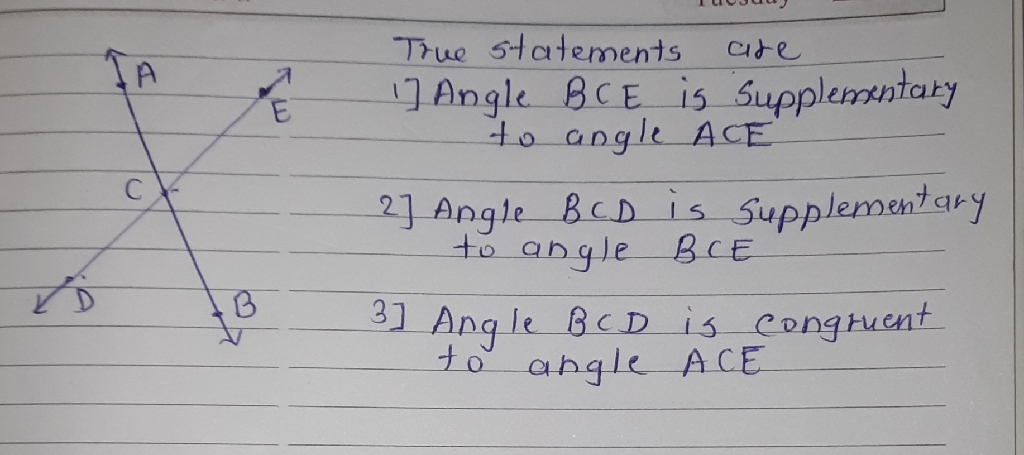 Tuesday
True statements are
1] Angle BCE is supplementary
to angle ACE
2] Angle BCD is supplementary
to angle BCE
3] Angle BCD is congruent
to angle ACE
A
E
C
D
B